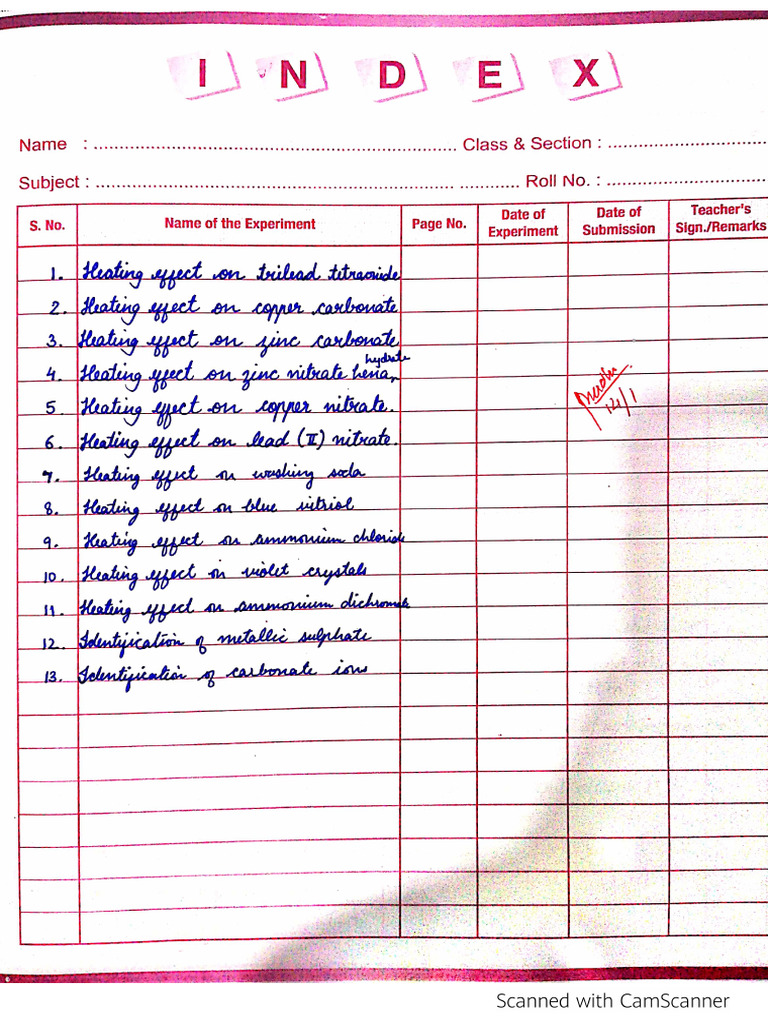 INDEX
Name : .......... Class & Section : ..........
Subject : .......... Roll No. : ..........
S. No. Name of the Experiment Page No. Date of Experiment Date of Submission Teacher's Sign./Remarks
1. Heating effect on trilead titraoxide
2. Heating effect on copper carbonate
3. Heating effect on zinc carbonate
4. Heating effect on zinc nitrate hexahydrate
5. Heating effect on copper nitrate.
6. Heating effect on lead (II) nitrate.
7. Heating effect on washing soda
8. Heating effect on blue vitriol
9. Heating effect on ammonium chloride
10. Heating effect on violet crystals
11. Heating effect on ammonium dichromate
12. Identification of metallic sulphate
13. Identification of carbonate ions
Scanned with CamScanner